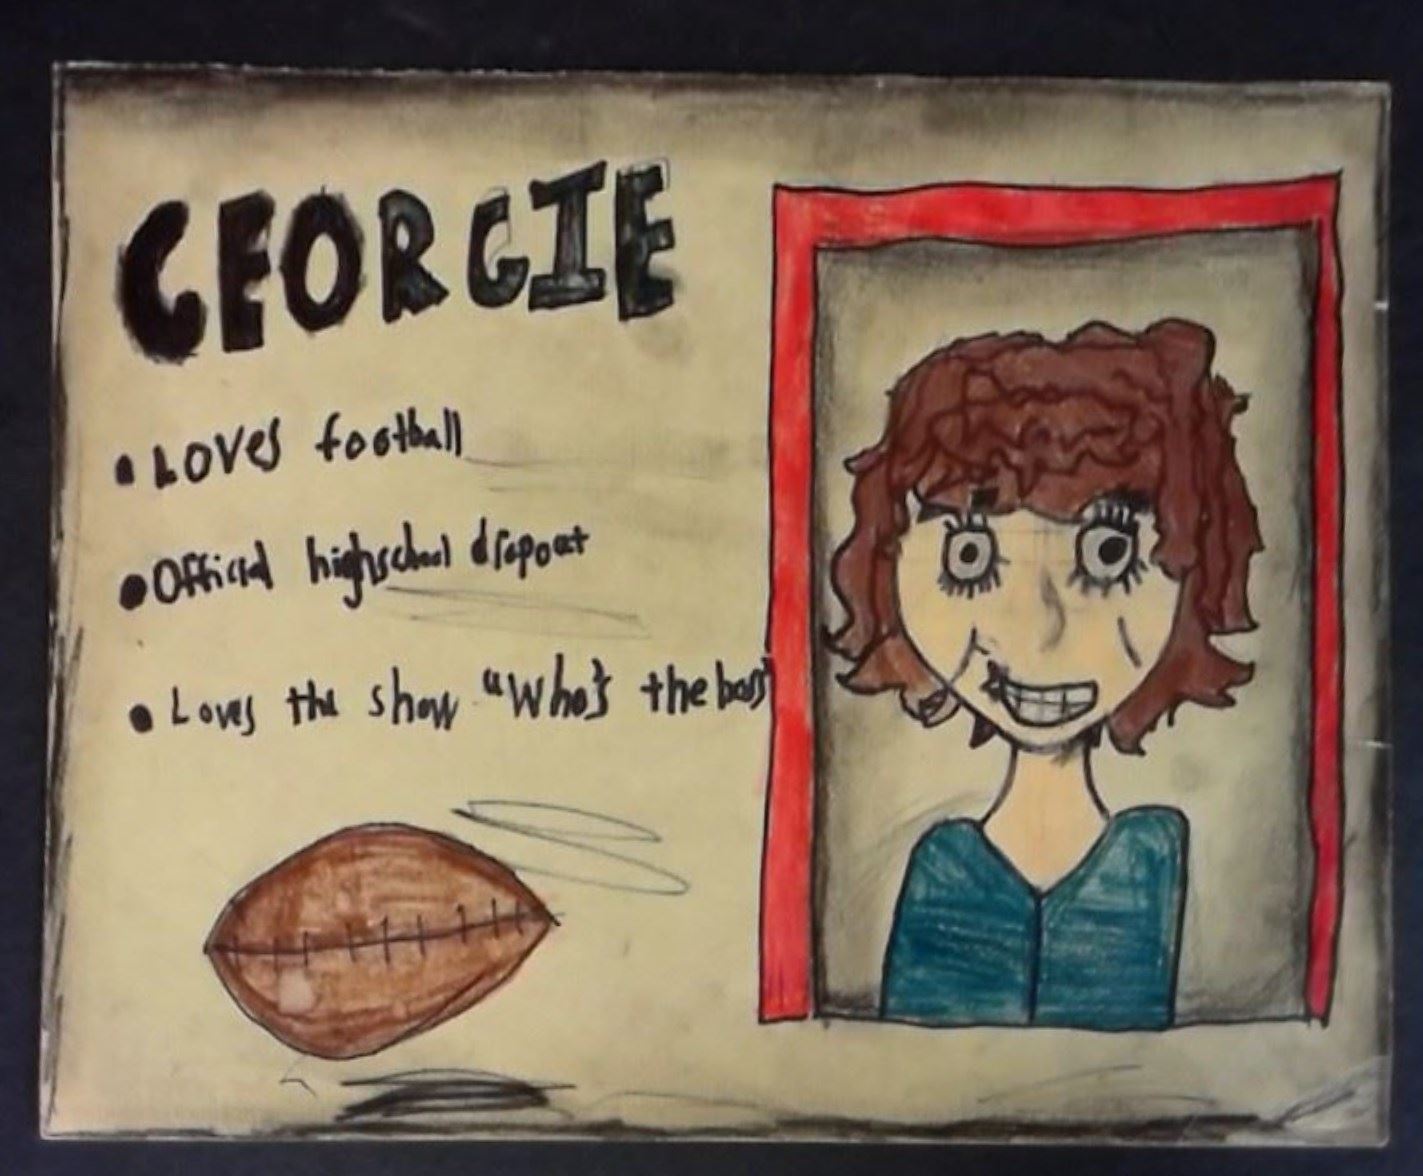 GEORGIE
• Loves football
• Official highschool dropout
• Loves the show "Who's the boss"